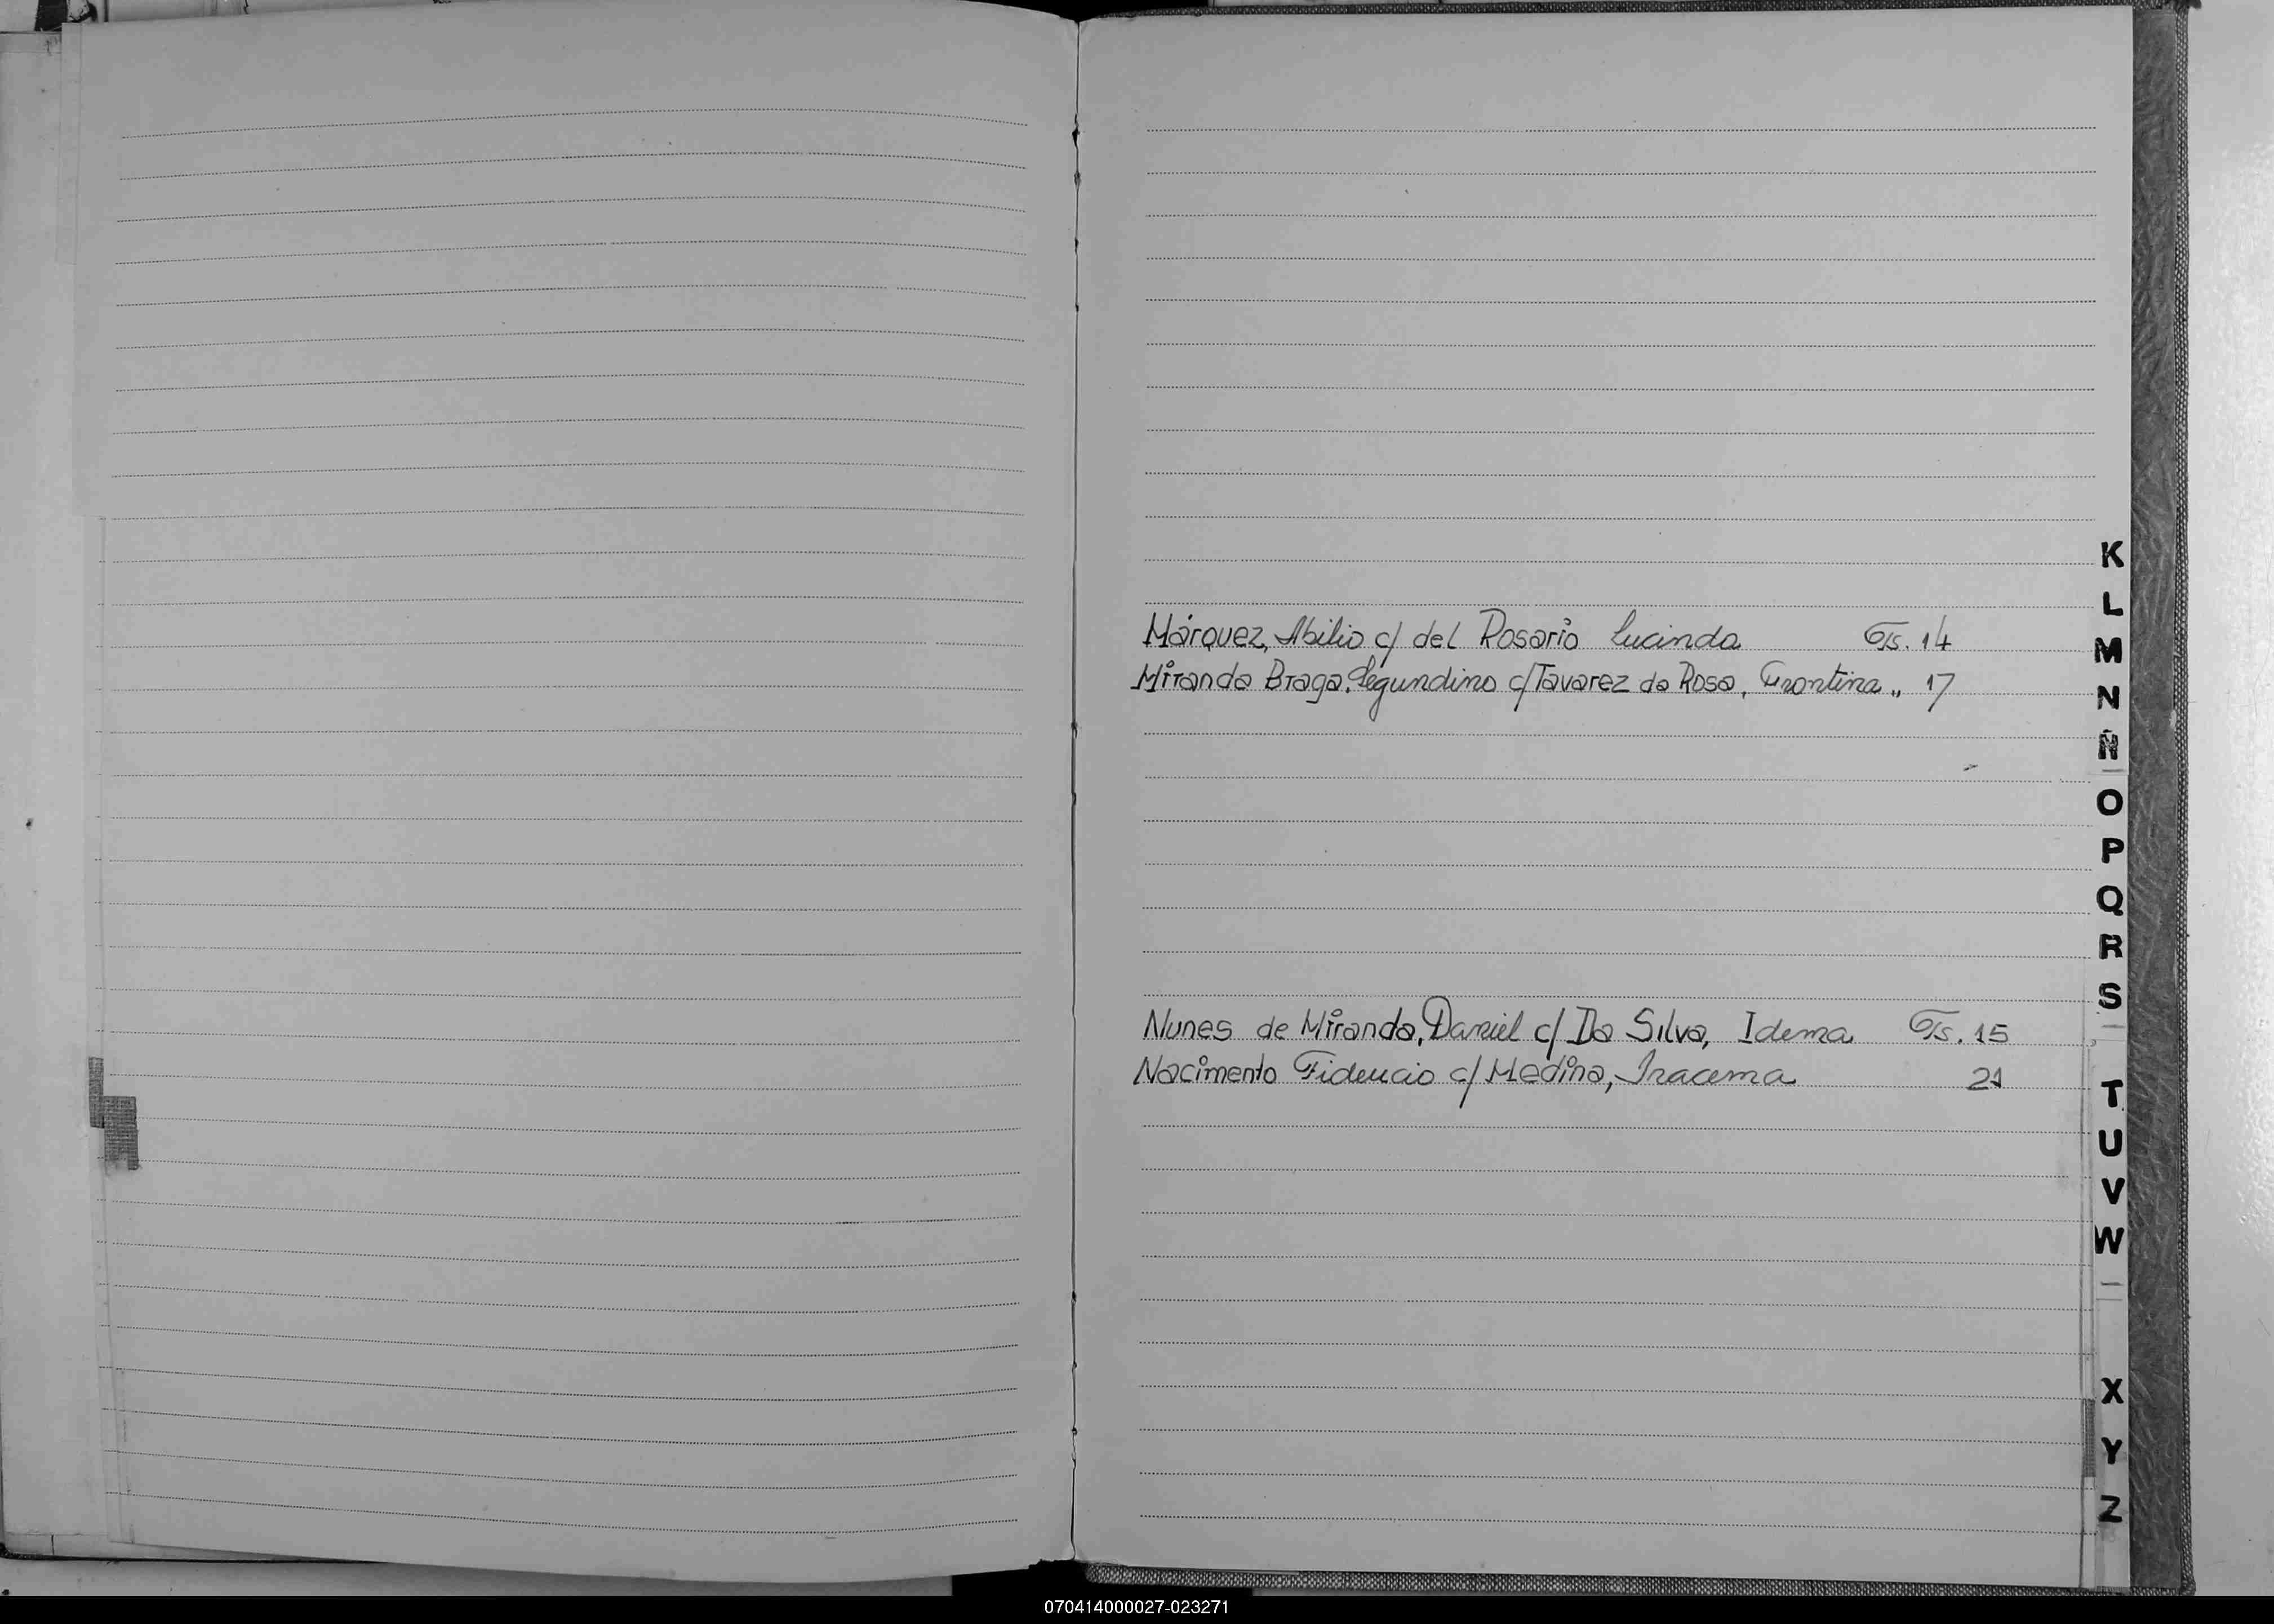 Márquez, Abilio c/ del Rosario Lucinda Fs. 14
Miranda Braga, Segundino c/ Tavarez da Rosa, Frontina " 17
Nunes de Miranda, Daniel c/ Da Silva, Idema Fs. 15
Nacimento Fidencio c/ Medina, Iracema 21
K
L
M
N
Ñ
O
P
Q
R
S
T
U
V
W
X
Y
Z
070414000027-023271